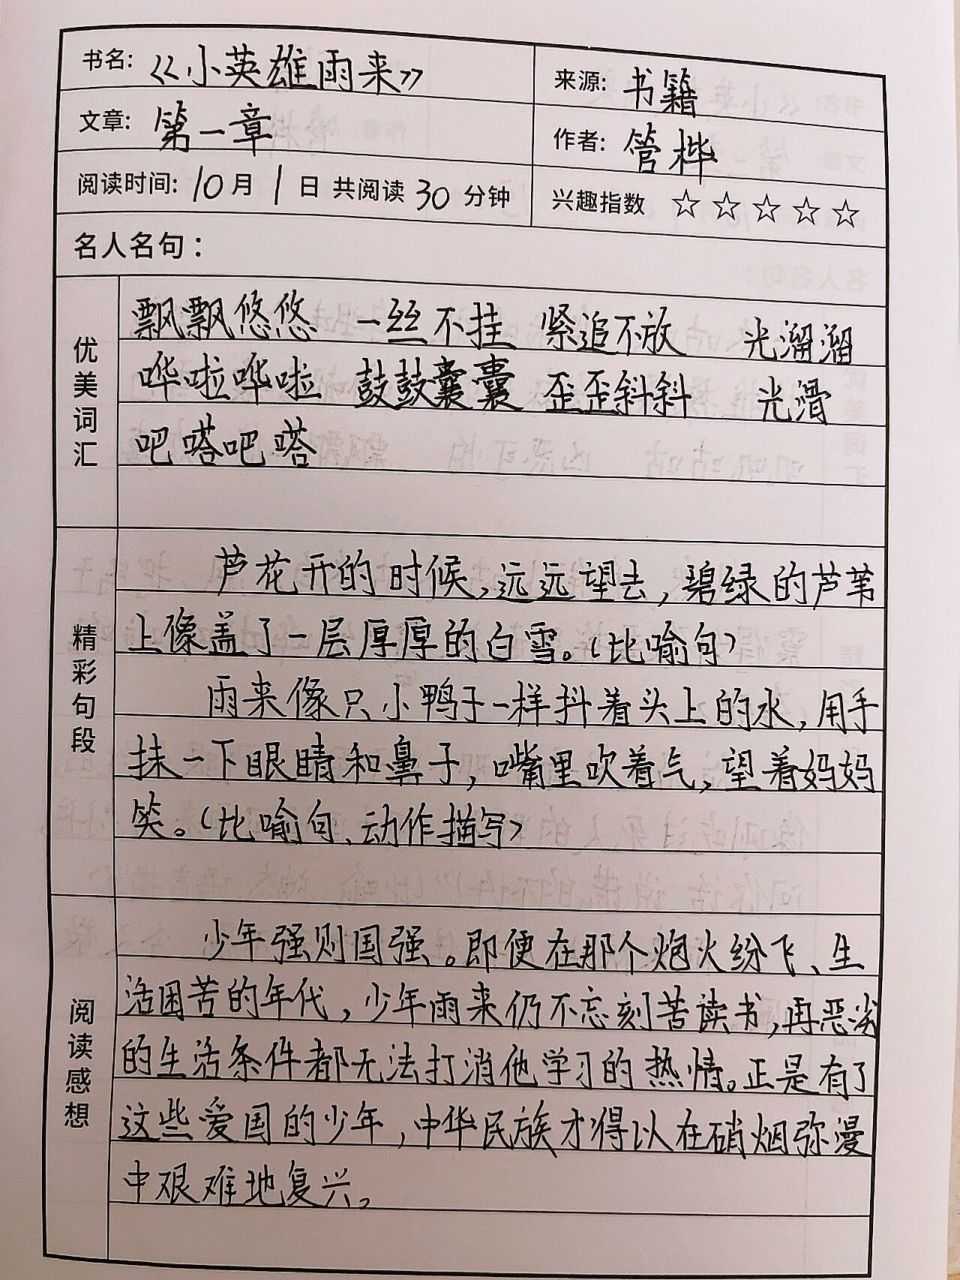 书名: 《小英雄雨来》 来源: 书籍
文章: 第一章 作者: 管桦
阅读时间: 10月 1日 共阅读30分钟 兴趣指数 ☆☆☆☆☆
名人名句：
优美词汇
飘飘悠悠 一丝不挂 紧追不放 光溜溜
哗啦哗啦 鼓鼓囊囊 歪歪斜斜 光滑
吧嗒吧嗒
精彩句段
芦花开的时候,远远望去,碧绿的芦苇
上像盖了一层厚厚的白雪。(比喻句)
雨来像只小鸭子一样抖着头上的水,用手
抹一下眼睛和鼻子,嘴里吹着气,望着妈妈
笑。(比喻句、动作描写)
阅读感想
少年强则国强。即便在那个炮火纷飞、生
活困苦的年代,少年雨来仍不忘刻苦读书,再恶劣
的生活条件都无法打消他学习的热情。正是有了
这些爱国的少年,中华民族才得以在硝烟弥漫
中艰难地复兴。